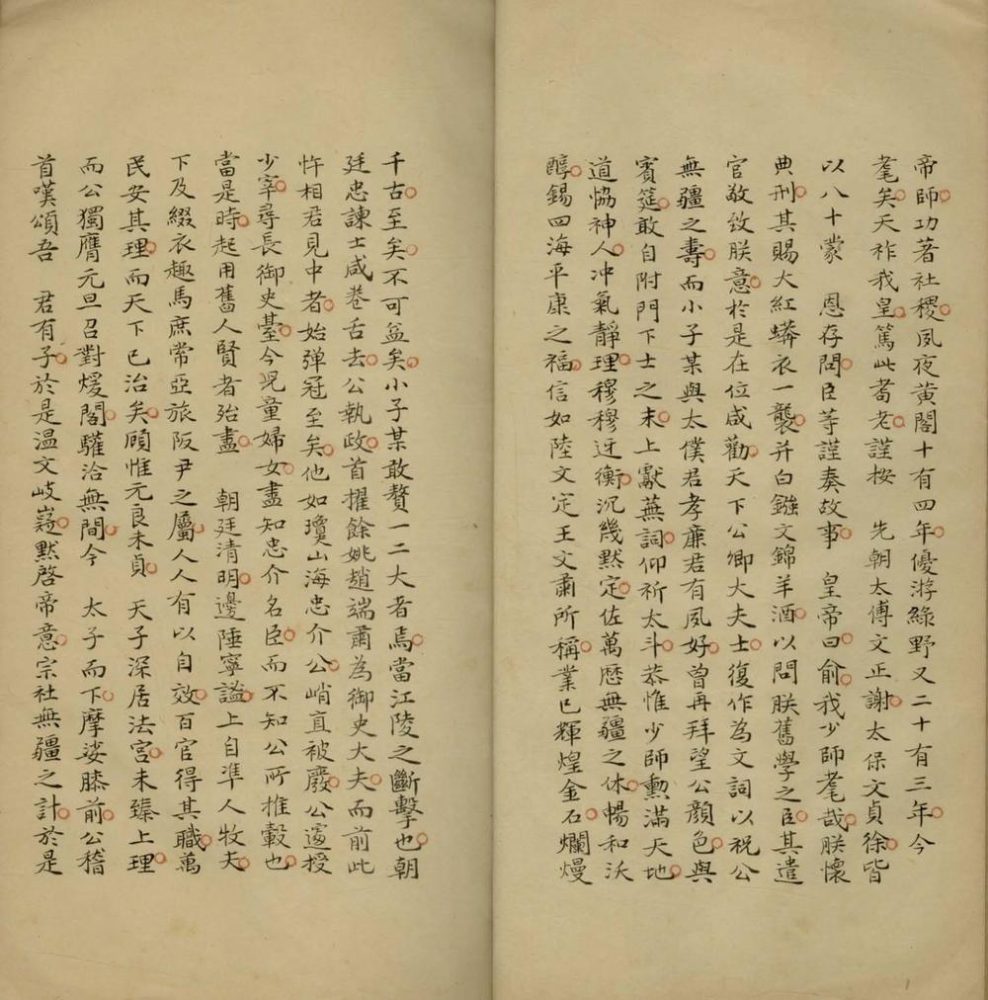 帝師功著社稷夙夜黄閣十有四年優游綠野又二十有三年今
耄矣天祚我皇篤此耈老謹按　先朝太傅文正謝太保文貞徐皆
以八十蒙　恩存問臣等謹奏故事　皇帝曰俞我少師耄哉朕懷
典刑其賜大紅蟒衣一襲并白鏹文錦羊酒以問朕舊學之臣其遣
官敬致朕意於是在位咸勸天下公卿大夫士復作為文詞以祝公
無疆之壽而小子某與太僕君孝廉君有夙好曾再拜望公顏色與
賓筵敢自附門下士之末上獻蕪詞仰祈太斗恭惟少師勳滿天地
道恊神人冲氣靜理穆穆迓衡沉幾默定佐萬歷無疆之休暢和沃
醇錫四海平康之福信如陸文定王文肅所稱業已輝煌金石爛熳
千古至矣不可益矣小子某敢贅一二大者焉當江陵之斷擊也朝
廷忠諫士咸卷舌去公執政首擢餘姚趙端肅為御史大夫而前此
忤相君見中者始弹冠至矣他如瓊山海忠介公峭直被廢公遽授
少宰尋長御史臺今児童婦女盡知忠介名臣而不知公所推轂也
當是時起用舊人賢者殆盡　朝廷清明邊陲寧謐上自準人牧夫
下及綴衣趣馬庶常亞旅阪尹之屬人人有以自效百官得其職萬
民安其理而天下已治矣顧惟元良未貞　天子深居法宮未臻上理
而公獨膺元旦召對煖閣驩洽無間今　太子而下摩娑膝前公稽
首嘆頌吾　君有子於是温文岐嶷默啓帝意宗社無疆之計於是